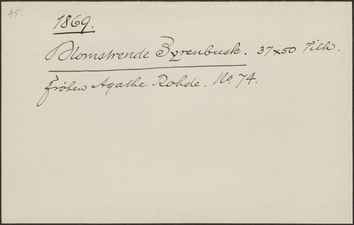 45
1869.
Blomstrende Syrenbusk. 37x50 Tilh.
Frøken Agathe Rohde. No 74.